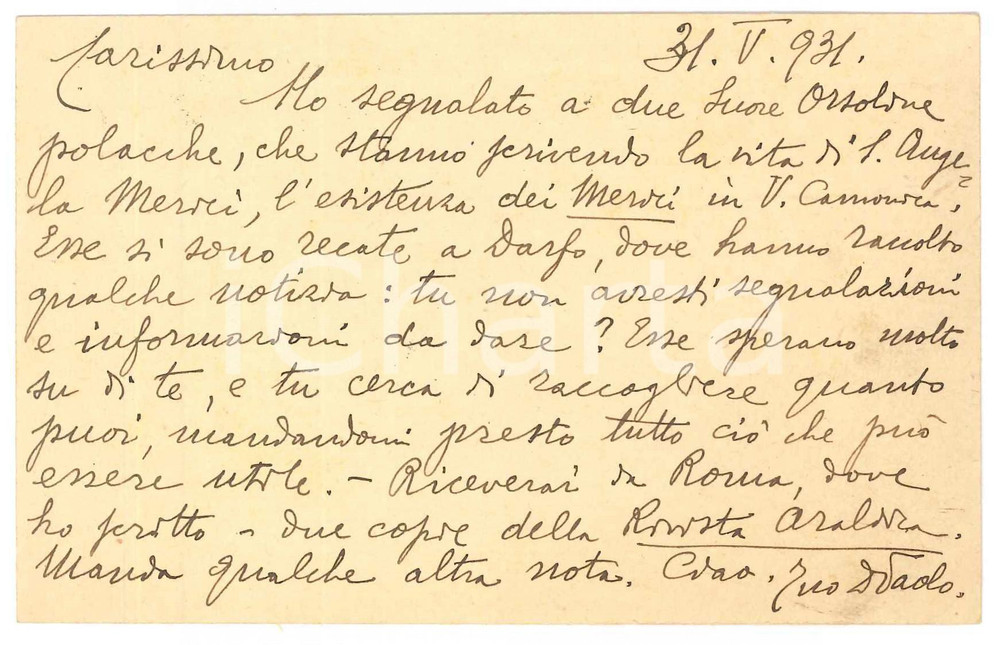 Carissimo 31. V. 931.
Ho segnalato a due Suore Orsoline
polacche, che stanno scrivendo la vita di S. Ange=
la Merici, l'esistenza dei Merici in V. Camonica.
Esse si sono recate a Darfo, dove hanno raccolto
qualche notizia: tu non avresti segnalazioni
e informazioni da dare? Esse sperano molto
su di te, e tu cerca di raccogliere quanto
puoi, mandandomi presto tutto ciò che può
essere utile. - Riceverai da Roma, dove
ho scritto - due copie della Rivista Araldica.
Manda qualche altra nota. Ciao. Tuo D Paolo.
iCharta